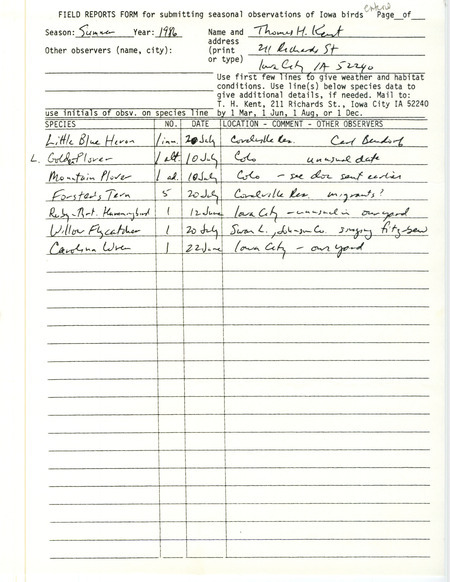 entered
FIELD REPORTS FORM for submitting seasonal observations of Iowa birds Page__of__
Season: Summer Year: 1986 Name and Thomas H. Kent
address
Other observers (name, city): (print 211 Richards St
or type) Iowa City IA 52240
Use first few lines to give weather and habitat
conditions. Use line(s) below species data to
give additional details, if needed. Mail to:
T. H. Kent, 211 Richards St., Iowa City IA 52240
use initials of obsv. on species line by 1 Mar, 1 Jun, 1 Aug, or 1 Dec.
SPECIES NO. DATE LOCATION - COMMENT - OTHER OBSERVERS
Little Blue Heron 1 imm. 20 July Coralville Res. Carl Bendorf
L. Golden Plover 1 alt 10 July Colo unusual date
Mountain Plover 1 ad. 10 July Colo - see doc sent earlier
Forster's Tern 5 20 July Coralville Res. migrants?
Ruby-thrt. Hummingbird 1 12 June Iowa City - unusual in our yard
Willow Flycatcher 1 20 July Swan L. Johnson Co. singing fitz-bew
Carolina Wren 1 22 June Iowa City - our yard